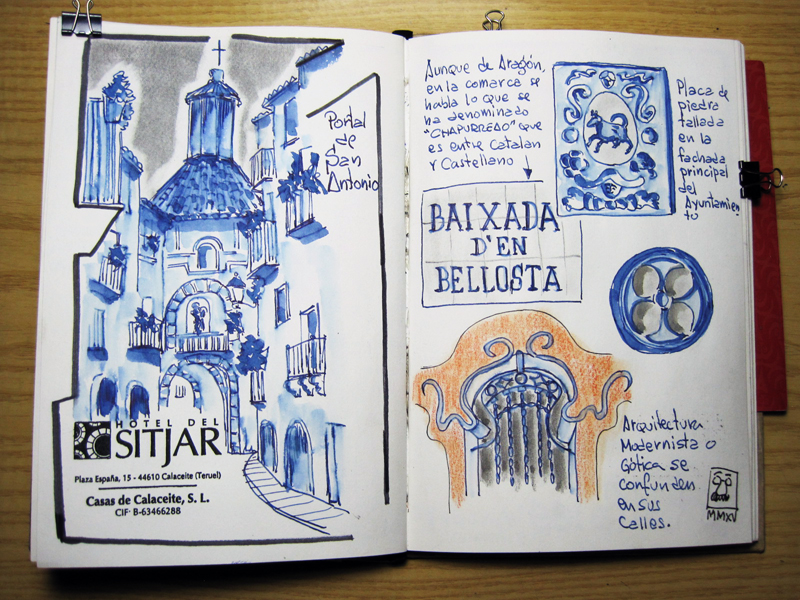 Portal
de
San
Antonio
HOTEL DEL
SITJAR
Plaza España, 15 - 44610 Calaceite (Teruel)
Casas de Calaceite, S. L.
CIF: B-63466288
Aunque de Aragón,
en la comarca se
habla lo que se
ha denominado
"CHAPURREDO" que
es entre Catalan
y Castellano
BAIXADA
D'EN
BELLOSTA
Placa de
piedra
tallada
en la
fachada
principal
del
Ayuntamien
to
Arquitectura
Modernista o
Gótica se
confunden
en sus
calles.
MMXV